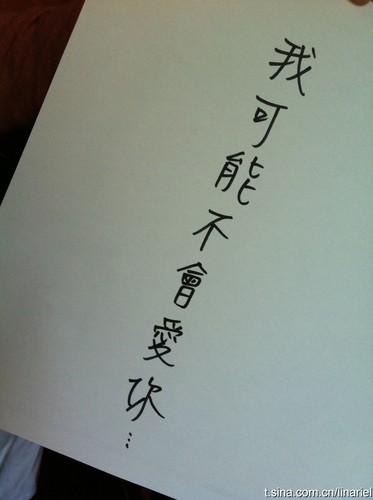 我可能不會愛你…
t.sina.com.cn/linariel